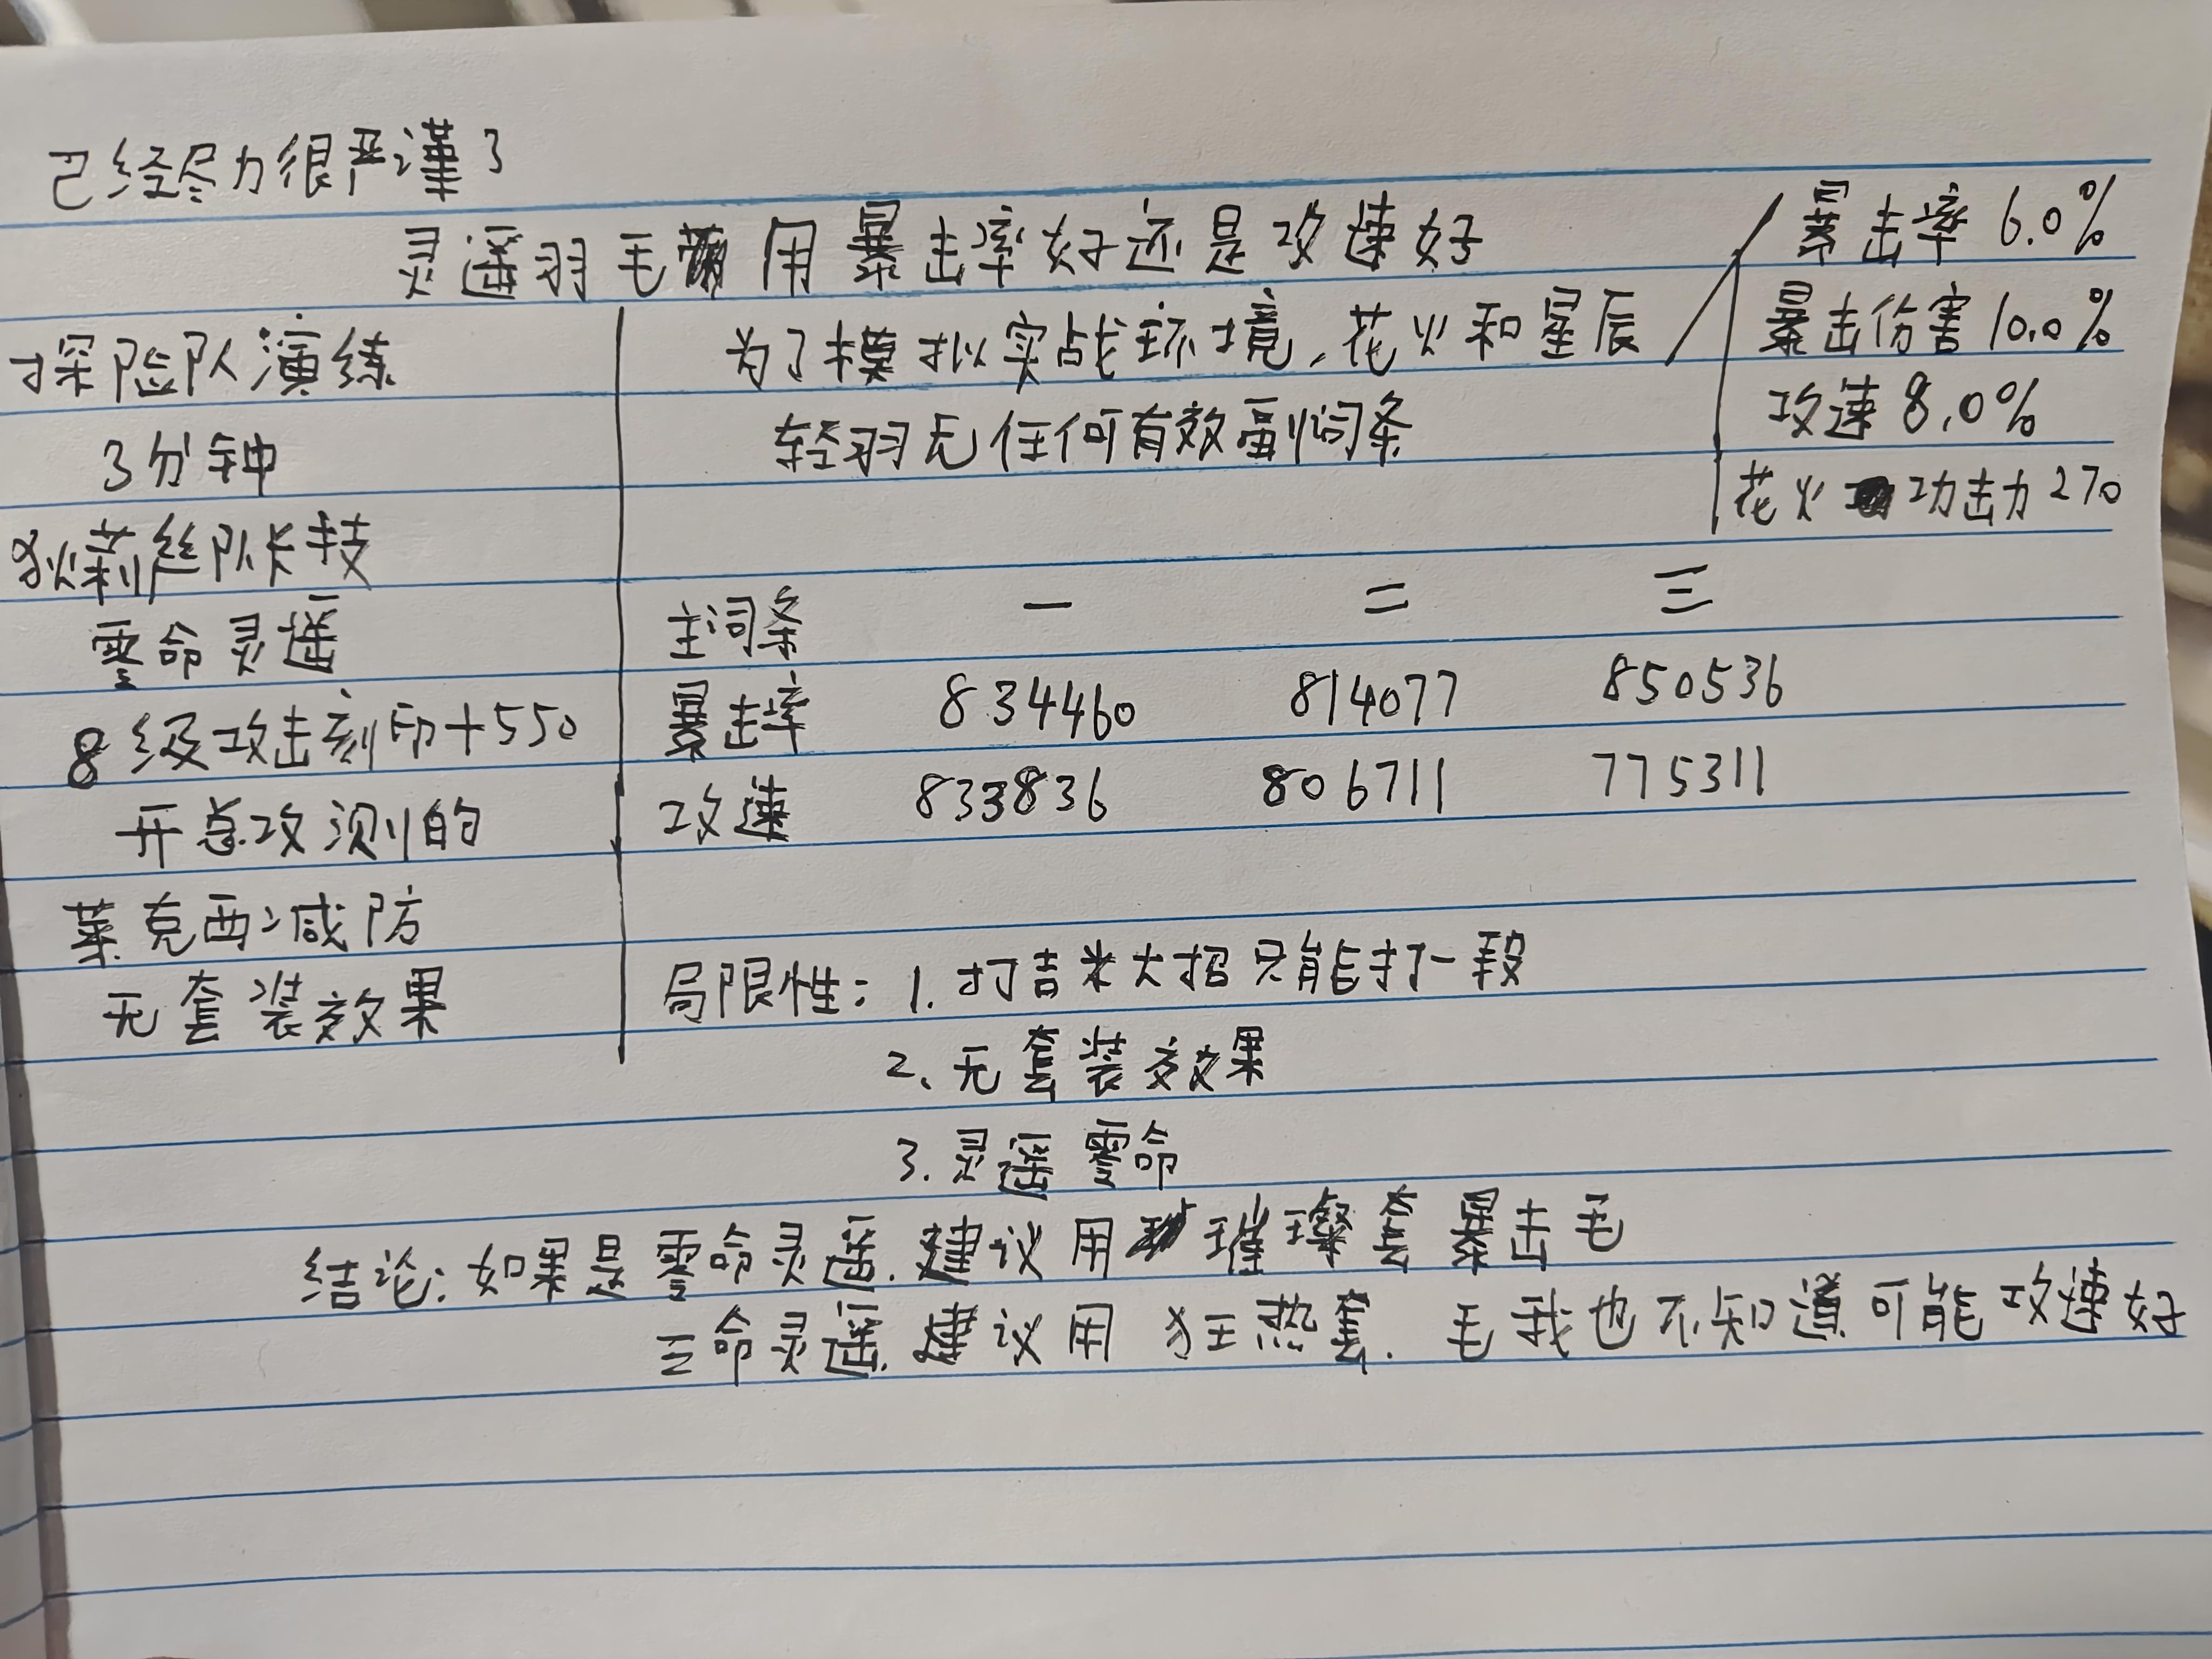 已经尽力很严谨了
灵遥羽毛用暴击率好还是攻速好
探险队演练
3分钟
狄莉丝队长技
零命灵遥
8级攻击刻印+550
开总攻测的
莱克西减防
无套装效果
为了模拟实战环境,花火和星辰
轻羽无任何有效副词条
暴击率 6.0%
暴击伤害 10.0%
攻速 8.0%
花火 功击力 270
主词条 一 二 三
暴击率 834460 814077 850536
攻速 833836 806711 775311
局限性: 1. 打吉米大招只能打一段
2、无套装效果
3. 灵遥零命
结论:如果是零命灵遥.建议用璀璨套暴击毛
三命灵遥.建议用狂热套.毛我也不知道可能攻速好